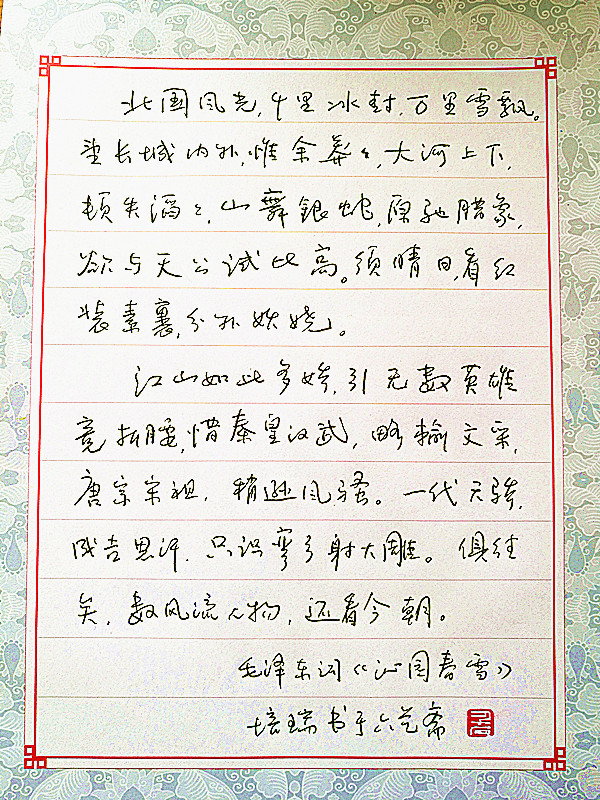 北国风光,千里冰封,万里雪飘。
望长城内外,惟余莽々,大河上下,
顿失滔々,山舞銀蛇,原驰腊象,
欲与天公试比高。须晴日,看红
装素裹,分外妖娆。
江山如此多娇,引无数英雄
竞折腰,惜秦皇汉武,略输文采,
唐宗宋祖,稍逊风骚。一代天骄,
成吉思汗,只识弯弓射大雕。俱往
矣,数风流人物,还看今朝。
毛泽东词《沁园春雪》
培瑞书于六艺斋